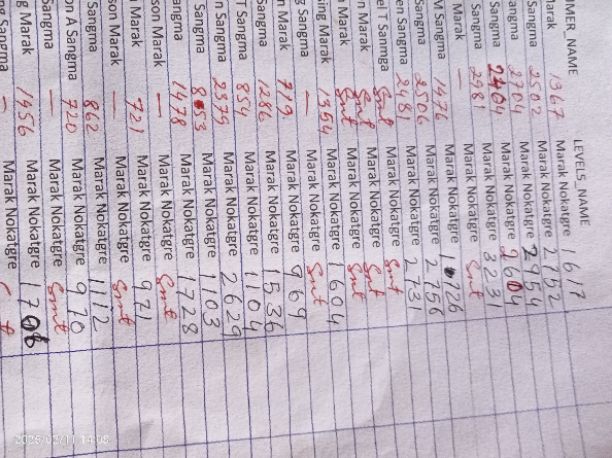 MER_NAME LEVELS_NAME
Marak 1367 Marak Nokatgre 1617
Sangma 2502 Marak Nokatgre 2752
angma 2704 Marak Nokatgre 2954
Sangma 2404 Marak Nokatgre 2604
Sangma 2981 Marak Nokatgre 3231
Marak — Marak Nokatgre Smt
M Sangma 1476 Marak Nokatgre 1726
Sangma 2506 Marak Nokatgre 2756
en Sangma 2481 Marak Nokatgre 2731
el T Sanmga Smt Marak Nokatgre Smt
n Marak Smt Marak Nokatgre Smt
a Marak Smt Marak Nokatgre Smt
ing Marak 1354 Marak Nokatgre 1604
g Sangma — Marak Nokatgre Smt
n Marak 719 Marak Nokatgre 969
Sangma 1286 Marak Nokatgre 1536
T Sangma 854 Marak Nokatgre 1104
n Sangma 2379 Marak Nokatgre 2629
Sangma 853 Marak Nokatgre 1103
angma 1478 Marak Nokatgre 1728
son Marak — Marak Nokatgre Smt
Marak 721 Marak Nokatgre 971
son Marak — Marak Nokatgre Smt
Sangma 862 Marak Nokatgre 1112
on A Sangma 720 Marak Nokatgre 970
Sangma — Marak Nokatgre Smt
g Marak 1456 Marak Nokatgre 1706
ng Sangma — Marak Nokatgre
2026/02/11 14:08